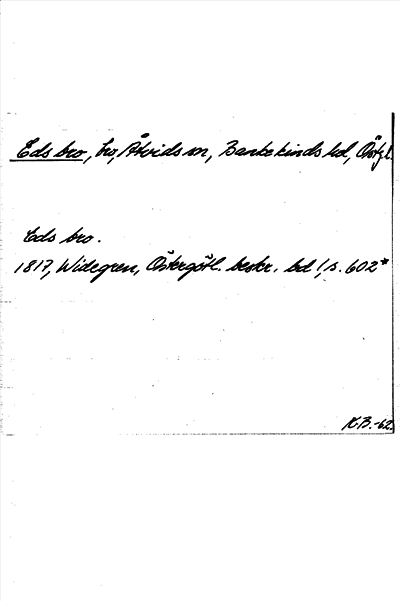 Eds bro, bro, Åtvids sn, Bankekinds hd, Östgl.
Eds bro.
1817, Widegren, Östergötl. beskr. bd 1, s. 602*
K.B.-62.